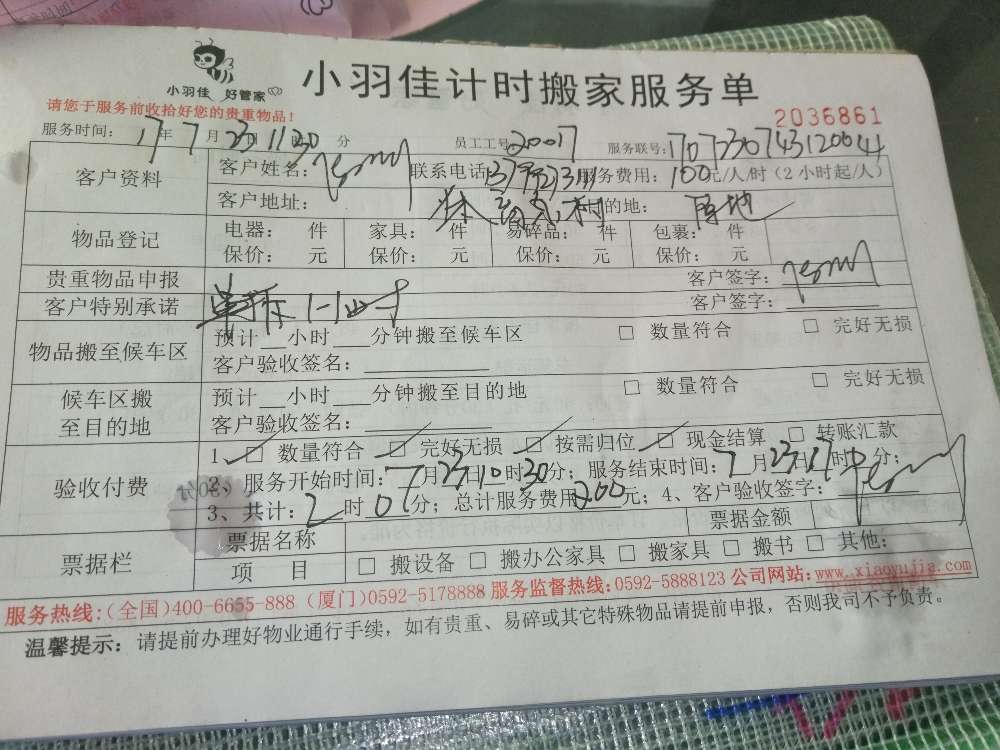 小羽佳 好管家
小羽佳计时搬家服务单
请您于服务前收拾好您的贵重物品!
2036861
服务时间: 17年 7月 23日 分 员工工号 20017 服务联号:
客户资料 客户姓名: 联系电话 服务费用: 100元/人/时(2小时起/人)
客户地址: 目的地:
物品登记 电器: 件 家具: 件 易碎品: 件 包裹: 件
保价: 元 保价: 元 保价: 元 保价: 元
贵重物品申报 客户签字:
客户特别承诺 客户签字:
物品搬至候车区 预计__小时___分钟搬至候车区 □ 数量符合 □ 完好无损
客户验收签名:
候车区搬至目的地 预计__小时___分钟搬至目的地 □ 数量符合 □ 完好无损
客户验收签名:
验收付费 1、☑ 数量符合 ☑ 完好无损 ☑ 按需归位 ☑ 现金结算 □ 转账汇款
2、服务开始时间: 7月23日10时30分; 服务结束时间: 7月23日 时 分;
3、共计: 2时0分; 总计服务费用200元; 4、客户验收签字:
票据栏 票据名称 票据金额
项 目 □ 搬设备 □ 搬办公家具 □ 搬家具 □ 搬书 □ 其他:
服务热线:(全国)400-6655-888 (厦门)0592-5178888 服务监督热线:0592-5888123 公司网站:www.xiaoyujia.com
温馨提示: 请提前办理好物业通行手续,如有贵重、易碎或其它特殊物品请提前申报,否则我司不予负责。